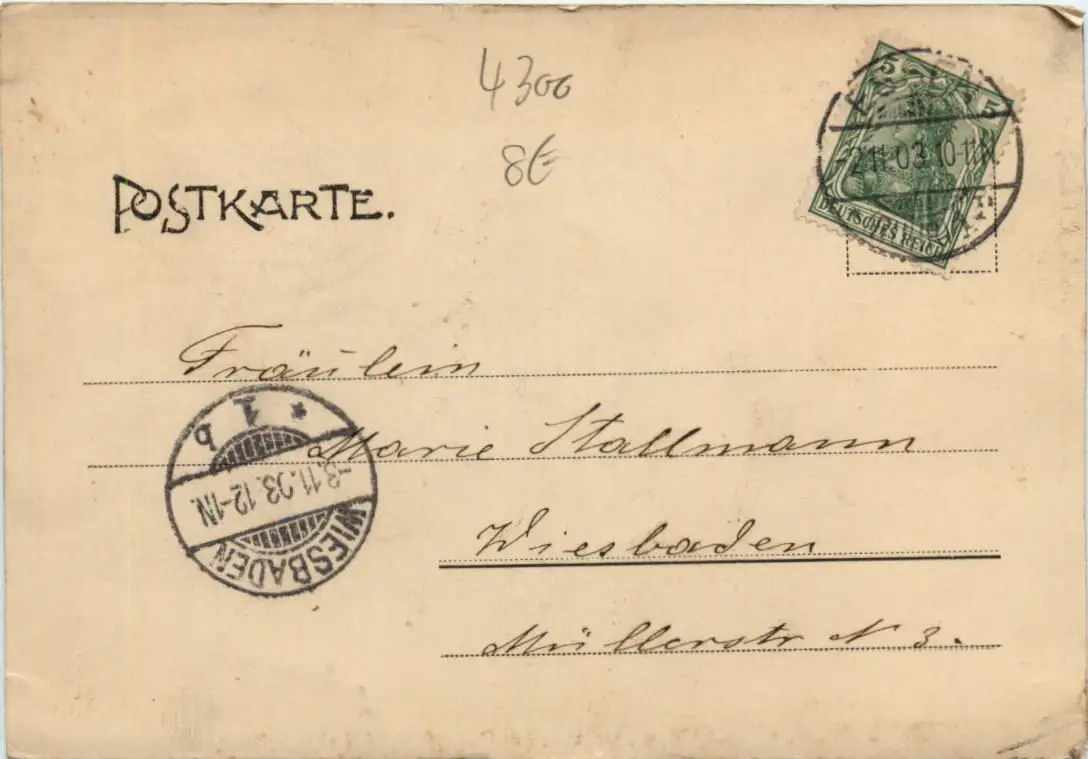 4300
8€
POSTKARTE.
5 5
-2.11.03.10-11N.
DEUTSCHES REICH
Fräulein
Marie Stallmann
Wiesbaden
Müllerstr N 3.
* 1 b
-3.11.03.12-1N.
WIESBADEN